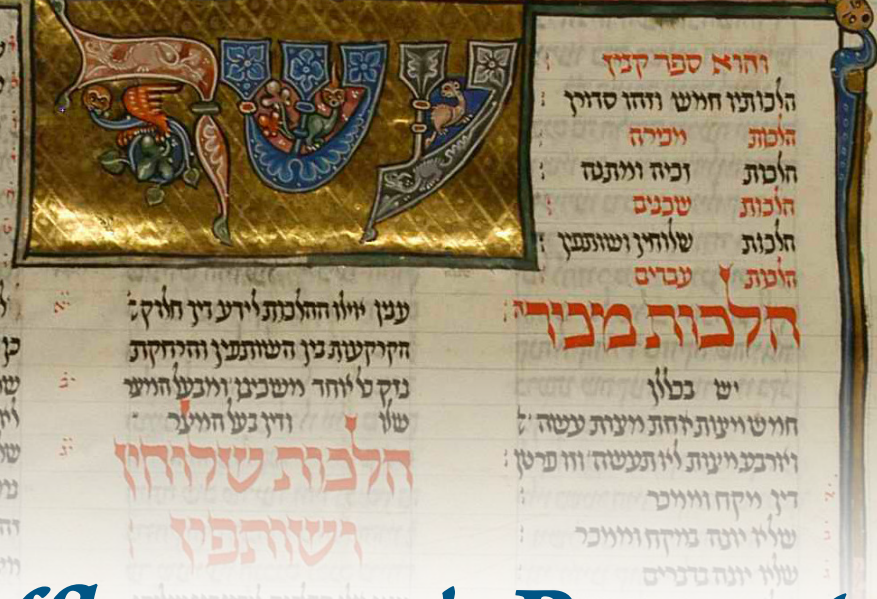 עשר
והוא ספר קנין
הלכותיו חמש וזהו סדורן
הלכות מכירה
הלכות זכיה ומתנה
הלכות שכנים
הלכות שלוחין ושותפין
הלכות עבדים
הלכות מכירה
יש בכללן
חמש מצות אחת מצות עשה
וארבע מצות לא תעשה וזו פרטן
דין מקח וממכר
שלא יונה במקח וממכר
שלא יונה בדברים
ענין אילו ההלכות לידע דין חלוקת
הקרקעות בין השותפין והרחקת
נזק כל אחד משכינו ומבעל המצר
שלו ודין בעל המצר
הלכות שלוחין
ושותפין